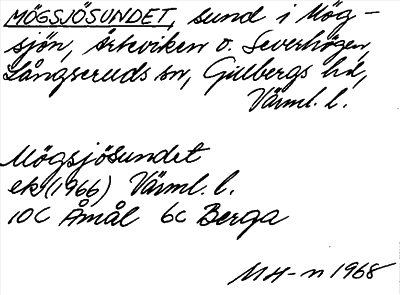 MÖGSJÖSUNDET, sund i Mög-
sjön, Årkviken o. Severhögen,
Långseruds sn, Gillbergs hd,
Värml. l.
Mögsjösundet
ek (1966) Värml. l.
10C Åmål 6c Berga
MH-n 1968